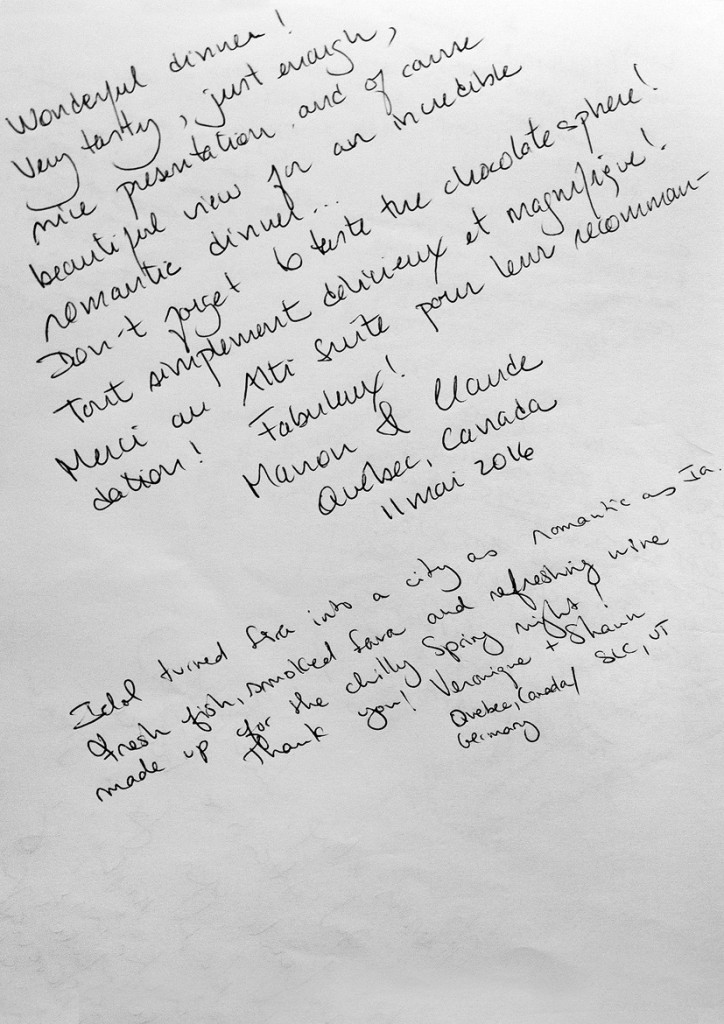 Wonderful dinner!
Very tasty, just enough,
nice presentation and of course
beautiful view for an incredible
romantic dinner...
Don't forget to taste the chocolate sphere!
Tout simplement délicieux et magnifique!
Merci au Alti Suite pour leur recomman-
dation! Fabuleux!
Manon & Claude
Québec, Canada
11 mai 2016
Idol turned Fira into a city as romantic as Ia.
Fresh fish, smoked fava and refreshing wine
made up for the chilly Spring night!
Thank you! Veronique + Shawn
Quebec, Canada/ SLC, UT
Germany